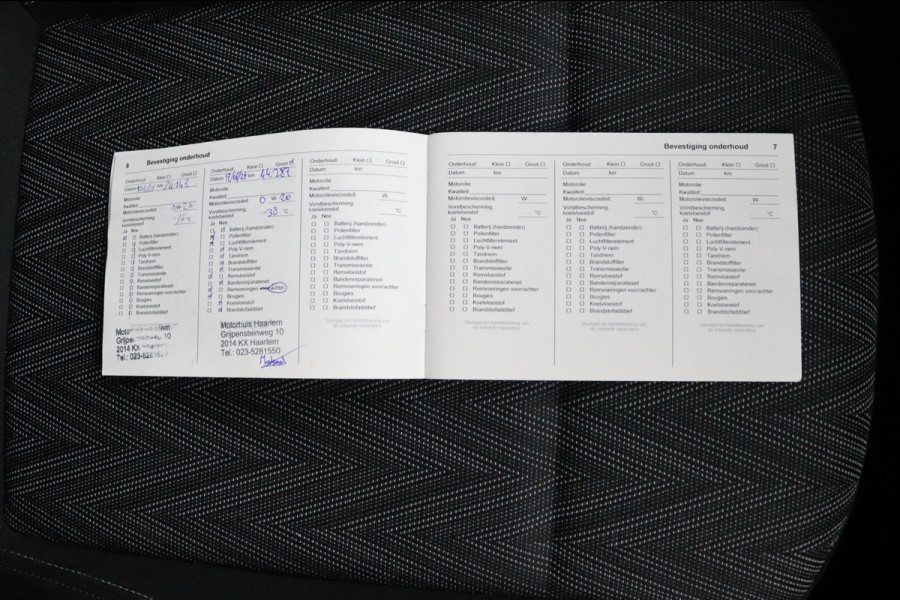 6 Bevestiging onderhoud
Onderhoud: Klein Groot
Datum km
Motorolie
Kwaliteit
Motorolieviscositeit W
Vorstbescherming,
koelvloeistof
Ja Nee
Batterij (handzender)
Pollenfilter
Luchtfilterelement
Poly-V-riem
Tandriem
Brandstoffilter
Transmissieolie
Remvloeistof
Bandenreparatieset
Remvoeringen voor/achter
Bougies
Koelvloeistof
Brandstofadditief
2014 KX Haarlem
Onderhoud: Klein Groot
Datum km 44.287
Motorolie
Kwaliteit
Motorolieviscositeit 0 W 20
Vorstbescherming,
koelvloeistof °C
Ja Nee
Batterij (handzender)
Pollenfilter
Luchtfilterelement
Poly-V-riem
Tandriem
Brandstoffilter
Transmissieolie
Remvloeistof
Bandenreparatieset
Remvoeringen voor/achter
Bougies
Koelvloeistof
Brandstofadditief
Motorhuis Haarlem
Grijpensteinweg 10
2014 KX Haarlem
Tel.: 023-5281550
Onderhoud: Klein Groot
Datum km
Motorolie
Kwaliteit
Motorolieviscositeit: W-
Vorstbescherming,
koelvloeistof °C
Ja Nee
Batterij (handzender)
Pollenfilter
Luchtfilterelement
Poly-V-riem
Tandriem
Brandstoffilter
Transmissieolie
Remvloeistof
Bandenreparatieset
Remvoeringen voor/achter
Bougies
Koelvloeistof
Brandstofadditief
Bevestiging onderhoud 7
Onderhoud: Klein Groot
Datum km
Motorolie
Kwaliteit
Motorolieviscositeit: W-
Vorstbescherming,
koelvloeistof °C
Ja Nee
Batterij (handzender)
Pollenfilter
Luchtfilterelement
Poly-V-riem
Tandriem
Brandstoffilter
Transmissieolie
Remvloeistof
Bandenreparatieset
Remvoeringen voor/achter
Bougies
Koelvloeistof
Brandstofadditief
Onderhoud: Klein Groot
Datum km
Motorolie
Kwaliteit
Motorolieviscositeit: W-
Vorstbescherming,
koelvloeistof °C
Ja Nee
Batterij (handzender)
Pollenfilter
Luchtfilterelement
Poly-V-riem
Tandriem
Brandstoffilter
Transmissieolie
Remvloeistof
Bandenreparatieset
Remvoeringen voor/achter
Bougies
Koelvloeistof
Brandstofadditief
Onderhoud: Klein Groot
Datum km
Motorolie
Kwaliteit
Motorolieviscositeit: W-
Vorstbescherming,
koelvloeistof °C
Ja Nee
Batterij (handzender)
Pollenfilter
Luchtfilterelement
Poly-V-riem
Tandriem
Brandstoffilter
Transmissieolie
Remvloeistof
Bandenreparatieset
Remvoeringen voor/achter
Bougies
Koelvloeistof
Brandstofadditief